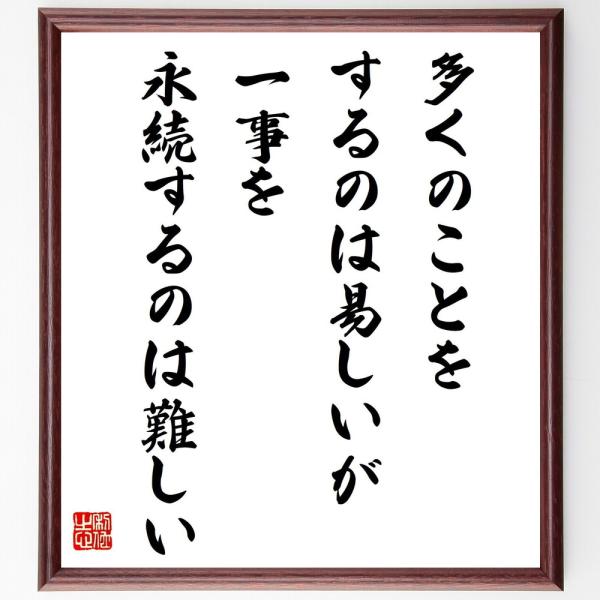 多くのことを
するのは易しいが
一事を
永続するのは難しい